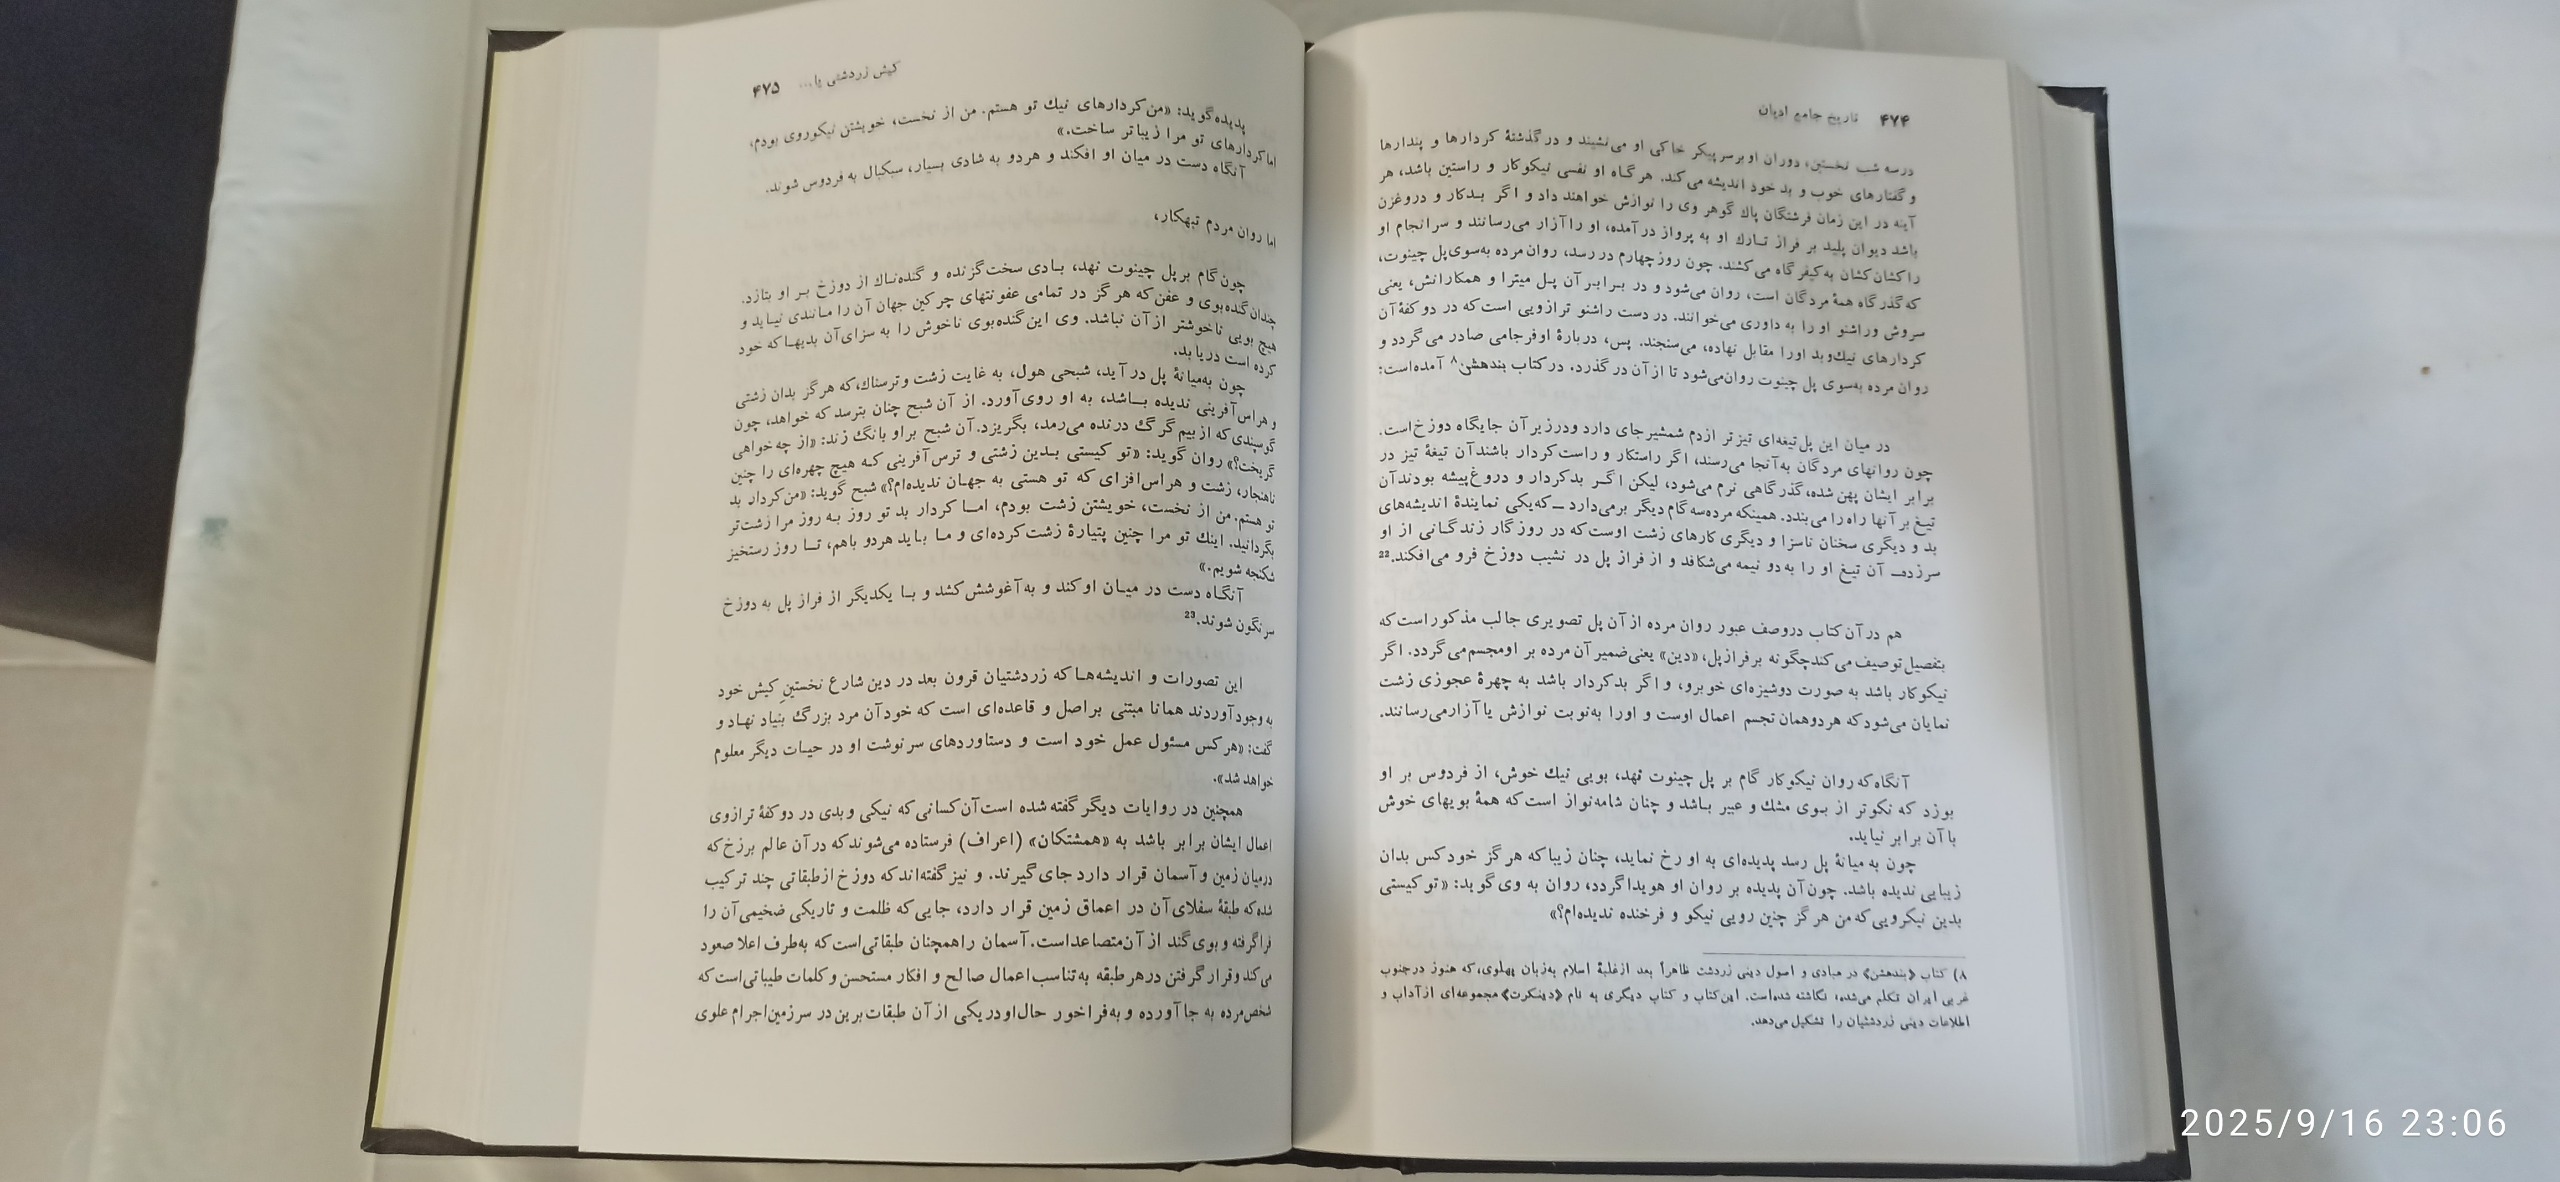 ۴۷۴ تاریخ جامع ادیان
درسه شب نخستین، دوران او برسر پیکر خاکی او می‌نشیند و در گذشتهٔ کردارها و پندارها
و گفتارهای خوب و بد خود اندیشه می‌کند. هرگاه او نفسی نیکوکار و راستین باشد، هر
آینه در این زمان فرشتگان پاك گوهر وی را نوازش خواهند داد و اگر بدکار و دروغزن
باشد دیوان پلید بر فراز تارك او به پرواز درآمده، او را آزار می‌رسانند و سرانجام او
را کشان‌کشان به کیفرگاه می‌کشند. چون روز چهارم در رسد، روان مرده به‌سوی پل چینوت،
که گذرگاه همهٔ مردگان است، روان می‌شود و در برابر آن پل میترا و همکارانش، یعنی
سروش وراشنو او را به داوری می‌خوانند. در دست راشنو ترازویی است که در دو کفهٔ آن
کردارهای نیك‌وبد اورا مقابل نهاده، می‌سنجند. پس، دربارهٔ اوفرجامی صادر می‌گردد و
روان مرده به‌سوی پل چینوت روان‌می‌شود تا از آن در گذرد. در کتاب بندهشن۸ آمده‌است:
در میان این پل‌تیغه‌ای تیزتر ازدم شمشیرجای دارد ودرزیرآن جایگاه دوزخ‌است.
چون روانهای مردگان به‌آنجا می‌رسند، اگر راستکار و راست‌کردار باشندآن تیغهٔ تیز در
برابر ایشان پهن شده، گذرگاهی نرم می‌شود، لیکن اگر بدکردار و دروغ‌پیشه بودندآن
تیغ بر آنها راه را می‌بندد. همینکه مرده‌سه گام دیگر برمی‌دارد ــ که‌یکی نمایندهٔ اندیشه‌های
بد و دیگری سخنان ناسزا و دیگری کارهای زشت اوست‌که در روزگار زندگانی از او
سرزده‌ــ آن تیغ او را به‌دو نیمه می‌شکافد و از فراز پل در نشیب دوزخ فرو می‌افکند.22
هم در آن کتاب دروصف عبور روان مرده از آن پل تصویری جالب مذکوراست‌که
بتفصیل توصیف می‌کندچگونه برفرازپل، «دین» یعنی‌ضمیر آن مرده بر اومجسم‌می‌گردد. اگر
نیکوکار باشد به صورت دوشیزه‌ای خوبرو، و اگر بدکردار باشد به چهرهٔ عجوزی زشت
نمایان می‌شودکه هردوهمان تجسم اعمال اوست و اورا به‌نوبت نوازش یا آزارمی‌رسانند.
آنگاه‌که روان نیکوکار گام بر پل چینوت نهد، بویی نیك خوش، از فردوس بر او
بوزد که نکوتر از بوی مشك و عبیر باشد و چنان شامه‌نواز است‌که همهٔ بویهای خوش
با آن برابر نیاید.
چون به میانهٔ پل رسد پدیده‌ای به او رخ نماید، چنان زیباکه هرگز خودکس بدان
زیبایی ندیده باشد. چون‌آن پدیده بر روان او هویداگردد، روان به وی گوید: «توکیستی
بدین نیکرویی‌که من هرگز چنین رویی نیکو و فرخنده ندیده‌ام؟»
۸) کتاب «بندهشن» در مبادی و اصول دینی زردشت ظاهراً بعد ازغلبهٔ اسلام به‌زبان پهلوی، که هنوز درجنوب
غربی ایران تکلم می‌شده، نگاشته شده‌است. این‌کتاب و کتاب دیگری به نام «دینکرت» مجموعه‌ای ازآداب و
اطلاعات دینی زردشتیان را تشکیل می‌دهد.
کیش زردشتی یا... ۴۷۵
پدیده‌گوید: «من‌کردارهای نیك تو هستم. من از نخست، خویشتن نیکوروی بودم،
اماکردارهای تو مرا زیباتر ساخت.»
آنگاه دست در میان او افکند و هردو به شادی بسیار، سبکبال به فردوس شوند.
اما روان مردم تبهکار،
چون گام بر پل چینوت نهد، بادی سخت‌گزنده و گنده‌ناك از دوزخ بر او بتازد.
چندان گنده‌بوی و عفن‌که هرگز در تمامی عفونتهای چرکین جهان آن را مانندی نیاید و
هیچ بویی ناخوشتر از آن نباشد. وی این گنده‌بوی ناخوش را به سزای‌آن بدیهاکه خود
کرده است دریابد.
چون به‌میانهٔ پل در آید، شبحی هول، به غایت زشت وترسناك،که هرگز بدان زشتی
و هراس‌آفرینی ندیده باشد، به او روی‌آورد. از آن شبح چنان بترسد که خواهد، چون
گوسپندی که از بیم گرگ درنده می‌رمد، بگریزد. آن شبح براو بانگ زند: «از چه خواهی
گریخت؟» روان گوید: «تو کیستی بدین زشتی و ترس‌آفرینی که هیچ چهره‌ای را چنین
ناهنجار، زشت و هراس‌افزای که تو هستی به جهان ندیده‌ام؟» شبح گوید: «من‌کردار بد
تو هستم. من از نخست، خویشتن زشت بودم، اما کردار بد تو روز به روز مرا زشت‌تر
بگردانید. اینك تو مرا چنین پتیارهٔ زشت‌کرده‌ای و ما باید هردو باهم، تا روز رستخیز
شکنجه شویم.»
آنگاه دست در میان اوکند و به‌آغوشش‌کشد و با یکدیگر از فراز پل به دوزخ
سرنگون شوند.23
این تصورات و اندیشه‌هاکه زردشتیان قرون بعد در دین شارع نخستینِ کیش خود
به وجودآوردند همانا مبتنی براصل و قاعده‌ای است که خودآن مرد بزرگ بنیاد نهاد و
گفت: «هرکس مسئول عمل خود است و دستاوردهای سرنوشت او در حیات دیگر معلوم
خواهد شد».
همچنین در روایات دیگر گفته شده است‌آن‌کسانی‌که نیکی و بدی در دوکفهٔ ترازوی
اعمال ایشان برابر باشد به «همشتکان» (اعراف) فرستاده می‌شوندکه درآن عالم برزخ‌که
درمیان زمین و آسمان قرار دارد جای گیرند. و نیز گفته‌اندکه دوزخ ازطبقاتی چند ترکیب
شده‌که طبقهٔ سفلای‌آن در اعماق زمین قرار دارد، جایی‌که ظلمت و تاریکی ضخیمی‌آن را
فراگرفته و بوی‌گند از آن‌متصاعداست. آسمان راهمچنان طبقاتی‌است‌که به‌طرف اعلا صعود
می‌کند وقرارگرفتن درهرطبقه به‌تناسب‌اعمال صالح و افکار مستحسن وکلمات طیباتی‌است‌که
شخص‌مرده به جاآورده و به‌فراخور حال‌اودریکی ازآن طبقات‌برین در سرزمین‌اجرام علوی
2025/9/16 23:06